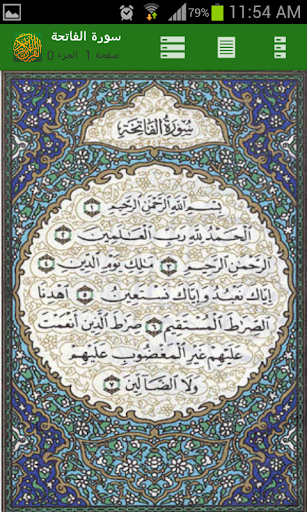 79% 11:54 AM
سورة الفاتحة
صفحة 1 الجزء 0
سُورَةُ الْفَاتِحَةِ
بِسْمِ اللَّهِ الرَّحْمَٰنِ الرَّحِيمِ ١
الْحَمْدُ لِلَّهِ رَبِّ الْعَالَمِينَ ٢
الرَّحْمَٰنِ الرَّحِيمِ ٣ مَلِكِ يَوْمِ الدِّينِ ٤
إِيَّاكَ نَعْبُدُ وَإِيَّاكَ نَسْتَعِينُ ٥ اهْدِنَا
الصِّرَطَ الْمُسْتَقِيمَ ٦ صِرَطَ الَّذِينَ أَنْعَمْتَ
عَلَيْهِمْ غَيْرِ الْمَغْضُوبِ عَلَيْهِمْ
وَلَا الضَّالِّينَ ٧